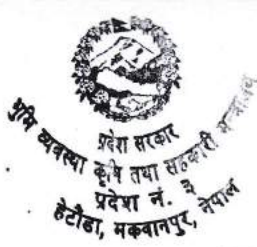 प्रदेश सरकार
भुमि व्यवस्था कृषि तथा सहकारी मन्त्रालय
प्रदेश नं. ३
हेटौडा, मकवानपुर, नेपाल